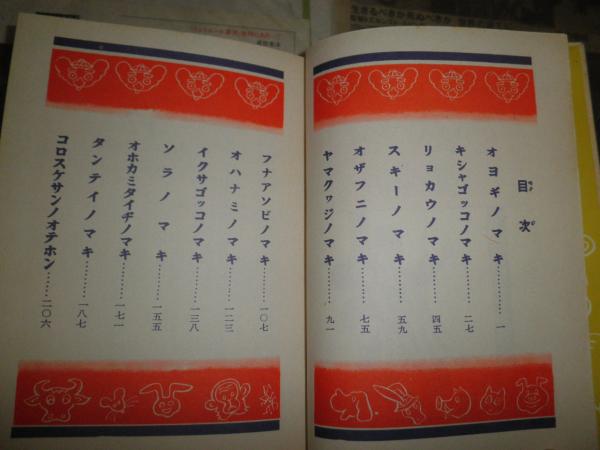 目次
オヨギノマキ………一
キシャゴッコノマキ………二七
リョカウノマキ………四五
スキーノマキ………五九
オザフニノマキ………七五
ヤマクヮジノマキ………九一
フナアソビノマキ………一〇七
オハナミノマキ………一二三
イクサゴッコノマキ………一三八
ソラノマキ………一五五
オホカミタイヂノマキ………一七一
タンテイノマキ………一八七
コロスケサンノオテホン………二〇六